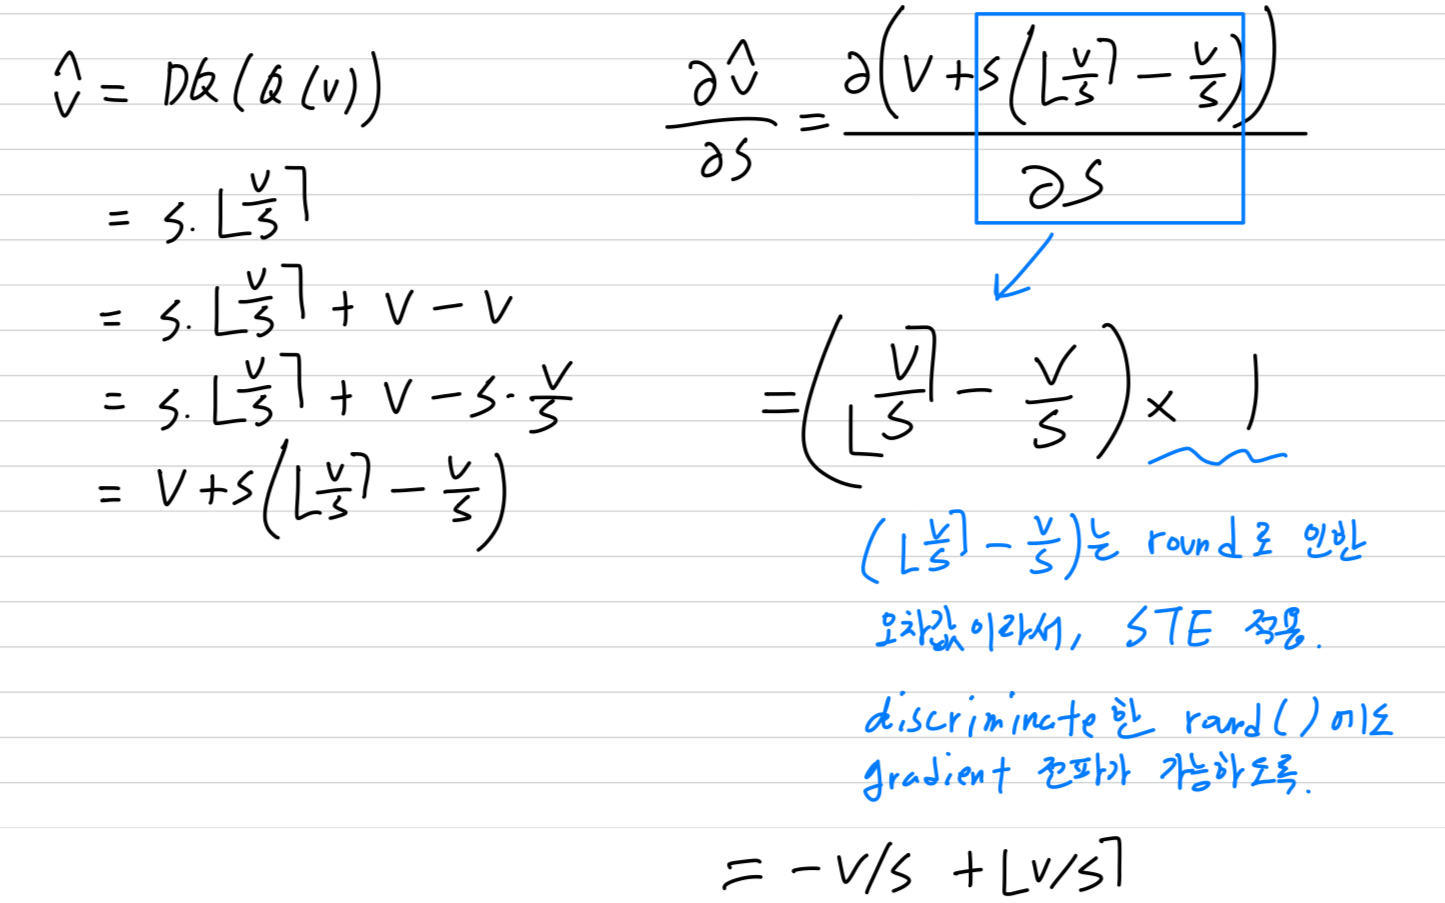 v̂ = DQ(Q(v))
= s·⌊v/s⌉
= s·⌊v/s⌉ + v − v
= s·⌊v/s⌉ + v − s·v/s
= v + s(⌊v/s⌉ − v/s)
∂v̂/∂s = ∂(v + s(⌊v/s⌉ − v/s))/∂s
= (⌊v/s⌉ − v/s) × 1
(⌊v/s⌉ − v/s)는 round로 인한
오차값이라서, STE 적용.
discriminate한 round()에도
gradient 전파가 가능하도록.
= −v/s + ⌊v/s⌉